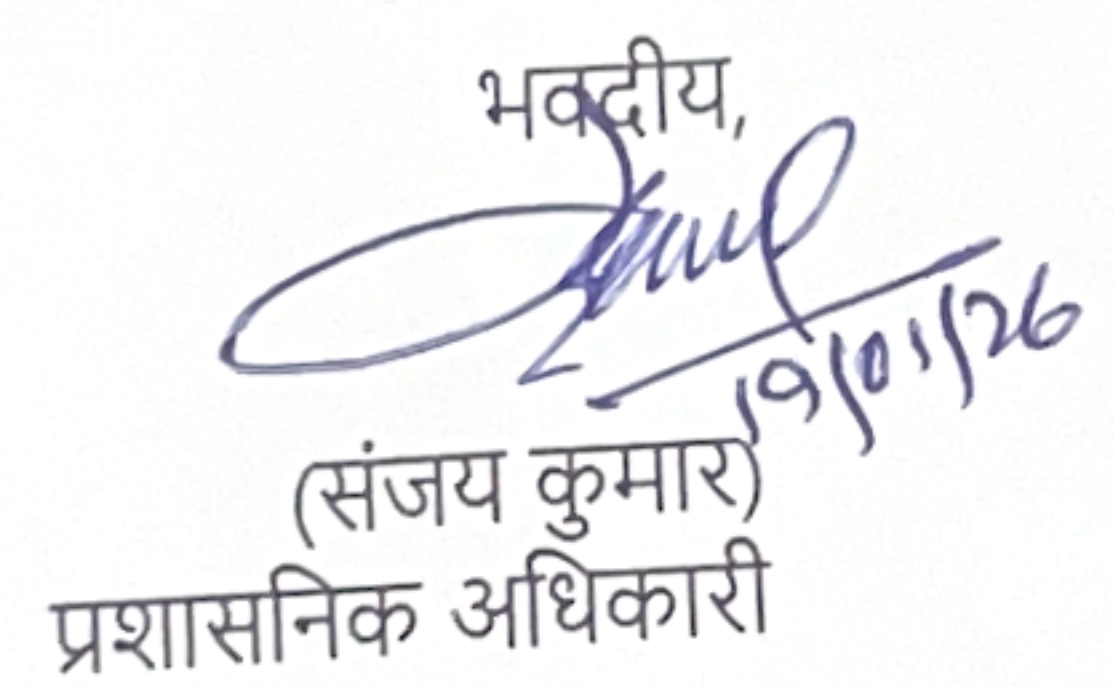 भवदीय,
19/01/26
(संजय कुमार)
प्रशासनिक अधिकारी